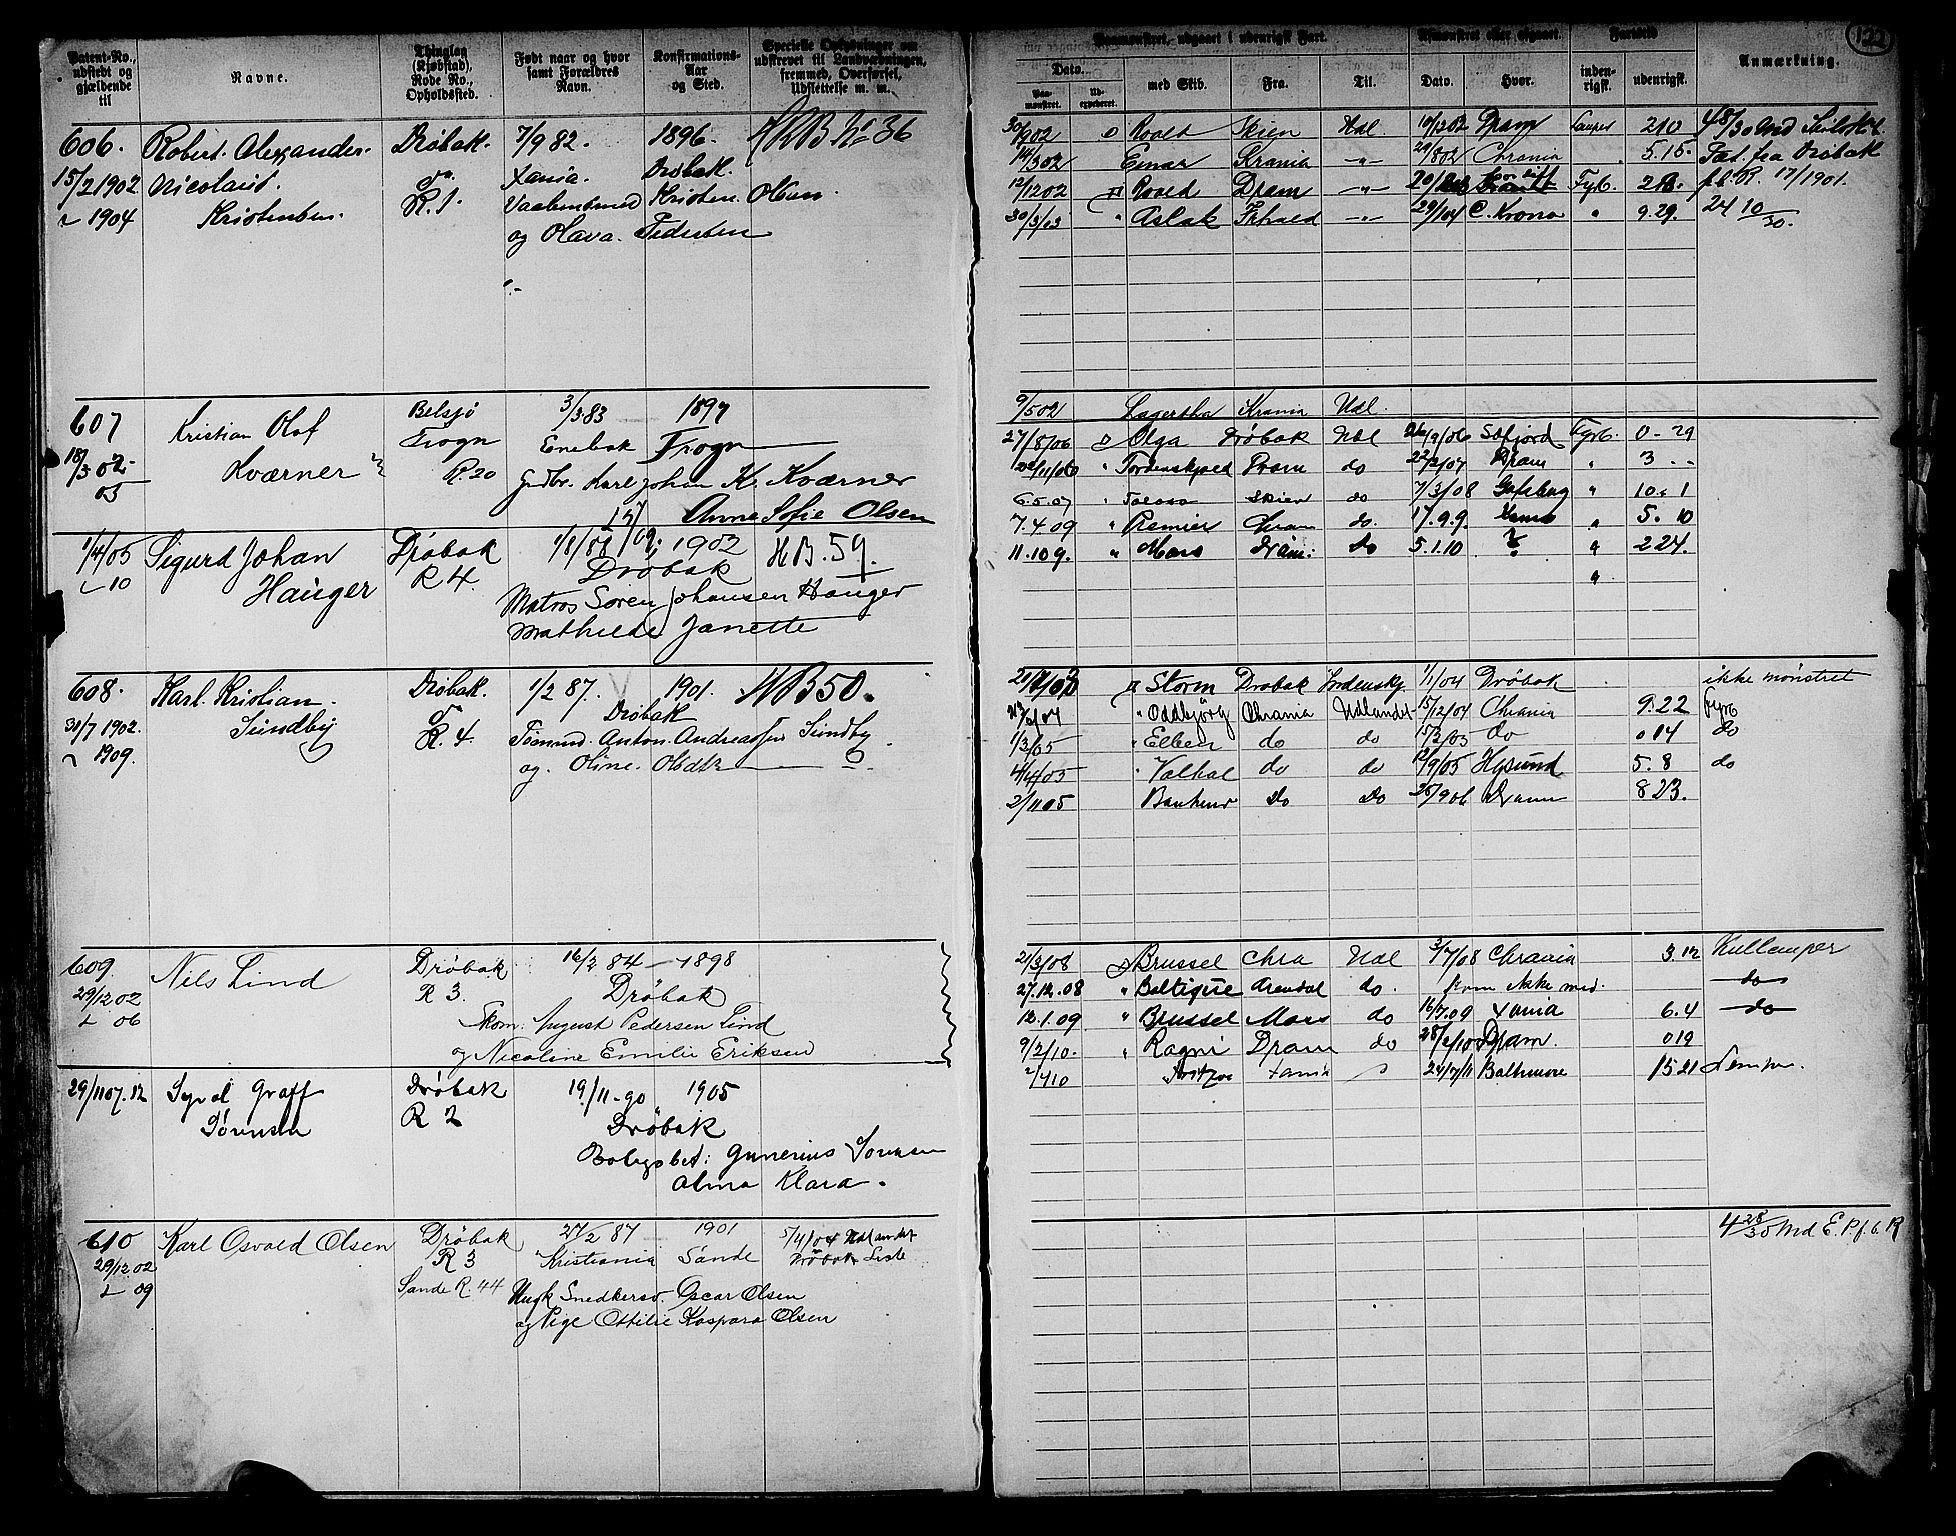 Patent-No., udstedt og gjældende til
Navne.
Thinglag (Kjøbstad), Rode No., Opholdssted.
Født naar og hvor samt Forældres Navn.
Konfirmations-Aar og Sted.
Specielle Oplysninger om udskrevet til Landværningen, fremmed, Overførsel, Udslettelse m. m.
606. Robert. Alexander. Drøbak. 7/9 82. 1896.
15/2 1902 Nicolaus. Xania. Drøbak.
1904 Kristensen. R. 1. Kristen Olsen
og Olava. Pedersen
607 Kristian Olof Belsjø 3/3 83 1897
18/3 02 Kværner Frogn Enebak Frogn
05 R. 20 Grdbr. Karl Johan K. Kværner
Anne Sofie Olsen
1/4/05 Sigurd Johan Drøbak 1902 HB. 59.
10 Hauger R 4. Drøbak
Matros Soren Johansen Hauger
Mathilde Janette
608. Karl. Kristian. Drøbak. 1/2 87. 1901. HB 50.
31/7 1902. Sundby R. 4. Drøbak
1909. Tømmd. Anton. Andreassen Sundby
og. Oline. Olsdtr
609. Nils Lind Drøbak 84 1898
29/12 02 R 3. Drøbak
06 Skom. August Pedersen Lind
og Nicoline Emilie Eriksen
29/11 07. 12 Graff Drøbak 19/11 - 90 1905
Sørensen R 2 Drøbak
Gunerius Sørensen
Alma Klara.
610 Karl Osvald Olsen Drøbak 27/2 87 1901 5/4/04 Udlandet
29/12. 02 R 3 Kristiania Sande Drøbak Liste
09 Sande R. 44 Ungk Snedkersv. Oscar Olsen
og Pige Othilie Kaspara Olsen
Paamønstret, udgaaet i udenrigsk Fart.
Afmønstret eller Egnet.
Fartstid
Dato. Paamønstret. Udexpederet. med Skib. Fra. Til. Dato. Hvor. indenrigsk. udenrigsk. Anmærkning.
122
30/9 02 Roald Skien Udl 10/12 02 Dram 2 10
14/3 02 Einar Krania 29/8 02 Chrania 5. 15.
12/12 02 Roald Dram Fyb. Pat. fra Drøbak 17/1901.
30/3/03 Aslak 29/1 04 C. Krona 9. 29. 24 10/30.
9/5 02 Lagertha Krania Udl.
27/8/06 Olga Drøbak Udl Fyrb. 0 - 29
Tordenskjold Dram do 22/2/07 Dram 3
6.5.07 Skien do 7/3/08 10. 1
7.4.09 Premier do. 17.9.9 5. 10
11.10 9. Mars Dram. do 5.1.10 2 24.
Storm Drøbak 1/1/04 Drøbak ikke mønstret
Oddbjørg Chrania Udlandet 15/12/04 Chrania 9. 22 fyrb
1/3/05 Elben do do do 0 14 do
4/4/05 Valhal do do 12/9/05 5. 8 do
2/11 05 do do 25/9 06 Dram 8 23.
21/3/08 Brussel Chra Udl 3/7/08 Chrania 3. 12 Kullemper
27.12.08 Baltique Arendal do. from ikke med. do
12.1.09 Brussel Moss do 16/7.09 Xania 6. 4 do
9/2/10. Ragni Dram do 28/2/10 Dram. 0 19
2/4 10 Xania 24/7/11 Baltimore 15 21 Lemper.
4 28/30 Md E. P. f. b. R